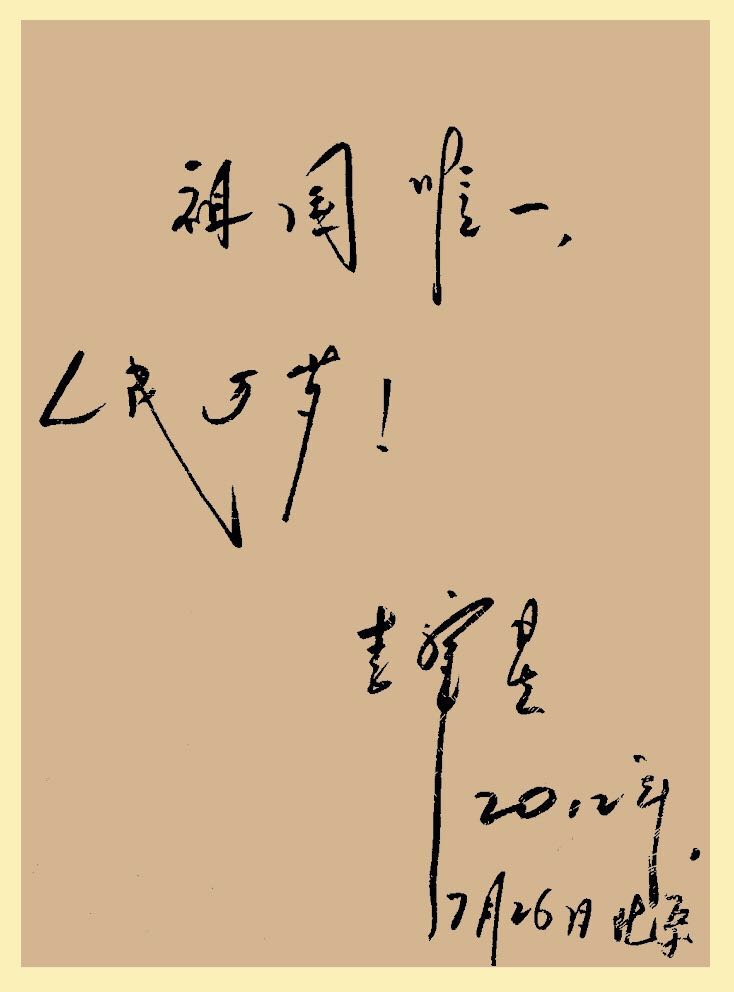 祖国唯一，
人民万岁！
星
2012年.
7月26日北京